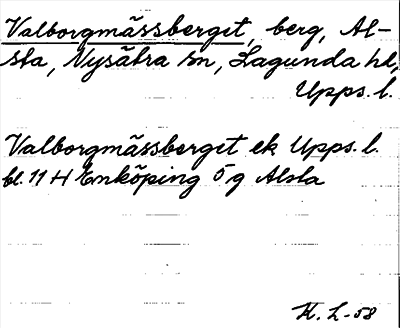 Valborgmässberget, berg, Al-
sta, Nysätra sn, Lagunda hd,
Upps. l.
Valborgmässberget ek Upps. l.
bl. 11 H Enköping 5 g Alsta
K. L-58